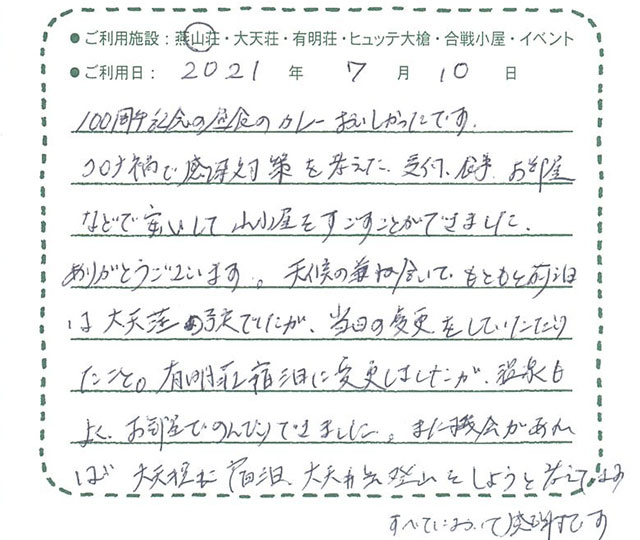 ●ご利用施設：燕山荘・大天荘・有明荘・ヒュッテ大槍・合戦小屋・イベント
●ご利用日：2021 年 7 月 10 日
100周年記念の昼食のカレーおいしかったです。
コロナ禍で感染対策を考えた、受付、食事、お部屋
などで安心して山小屋をすごすことができました、
ありがとうございます。天候の兼ね合いで、もともと前泊
は大天荘の予定でしたが、当日の変更をしていただ
たこと。有明荘宿泊に変更しましたが、温泉も
よく、お部屋でのんびりできました。また機会があれ
ば 大天荘 宿泊、大天井岳登山をしようと考えてます
すべてにおいて感謝です